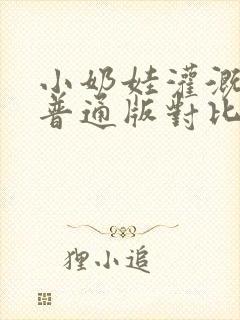 小奶娃灌溉
普通版對比
狸小追